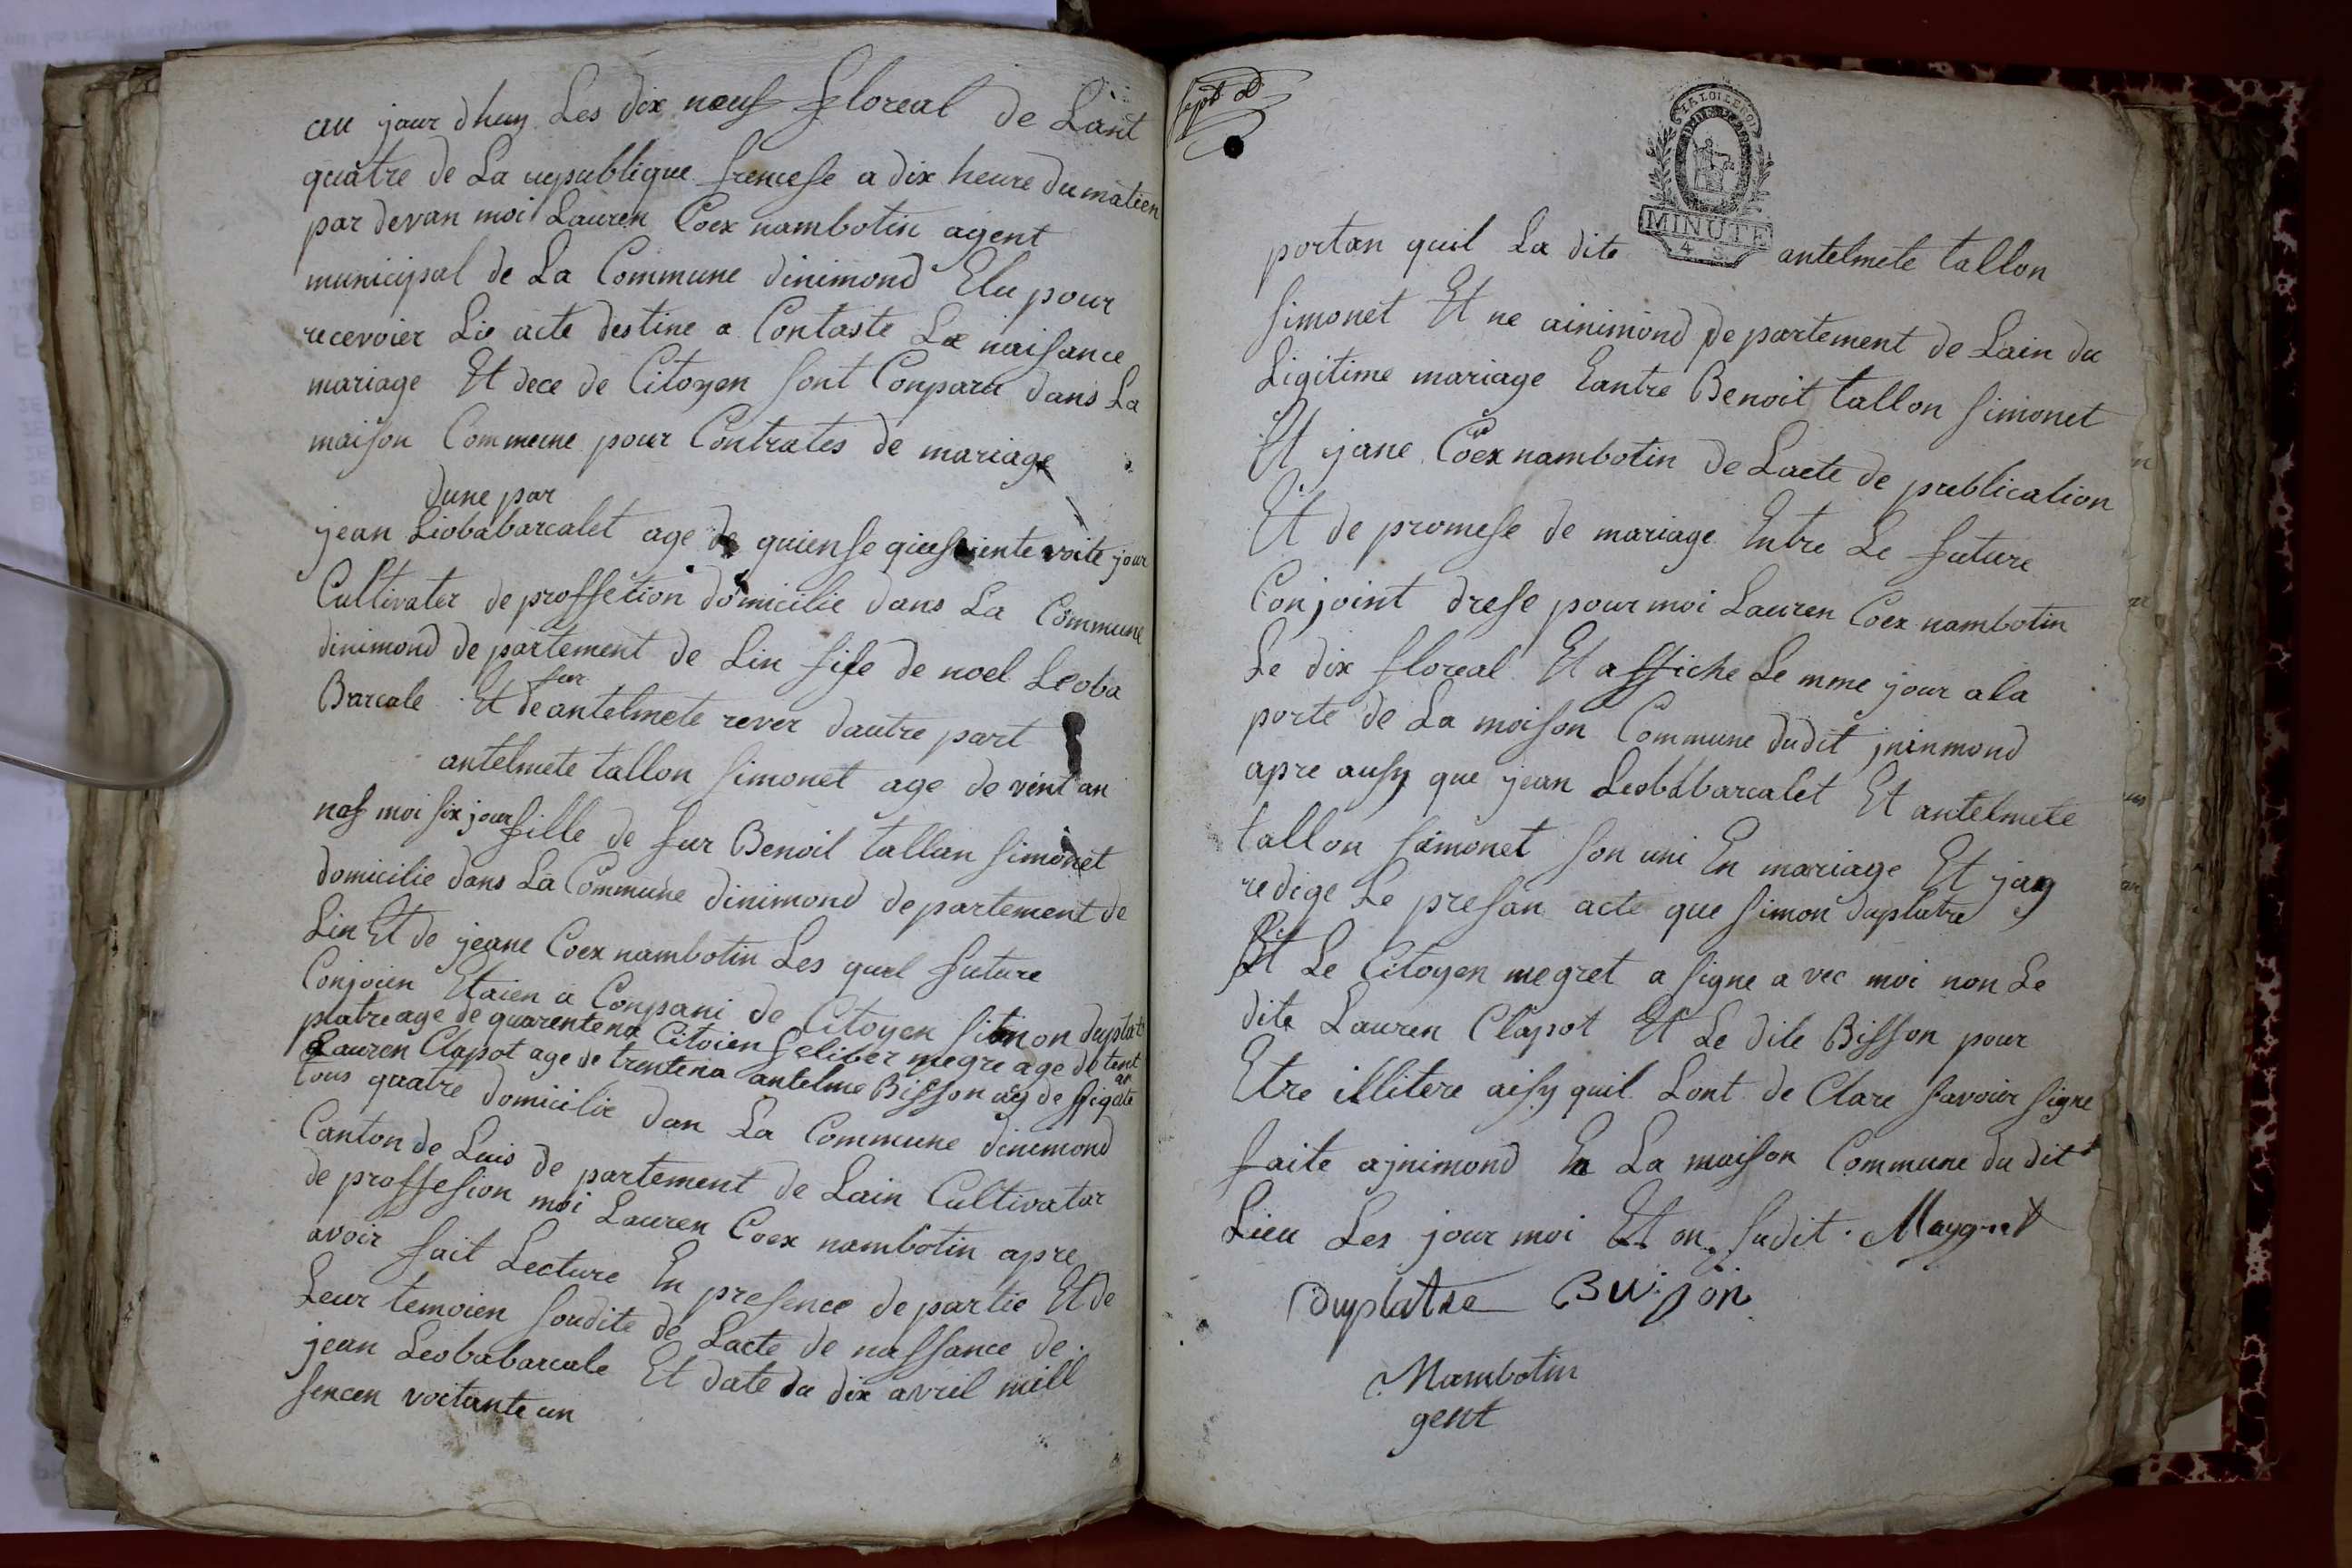 au jour dhuy Les dix neuf floreal de Lant
quatre de La republique francese a dix heure du matien
par devan moi Lauren Coex nambotin agent
municipal de La Commune dinimond Elu pour
recevoier Lie acte destine a Contaste La naisance
mariage Et dece de Citoyen sont Conparu dans La
maison Commeune pour Contrates de mariage
dune par
jean Liobabarcalet age de quiense voite jour
Cultivater de proffetion domicilie dans La Commune
dinimond departement de Lin fife de noel Leoba
fur
Barcale Et de antelmete rever dautre part
antelmete tallon simonet age de vint an
nof moi six jour fille de fur Benoit tallan simonet
domicilie dans La Commune dinimond departement de
Lin Et de jeane Coex nambotin Les quel future
Conjoien Etaien a Conpani de Citoyen simon duplat
platre age de quarentena Citoien feliber megre age de tent
an
Lauren Clapot age de trentena antelme Bisson ag de
tous quatre domicilie dan La Commune dinimond
Canton de Luis de partement de Lain Cultivatur
de proffesion moi Lauren Coex nambotin apre
avoir fait Lecture En presence de partie Et de
Leur temoien soudite de Lacte de nassance de
jean Leobabarcale Et date du dix avril mill
sencen voitante un
MINUTE
4 S
portan quil La dite antelmete tallon
simonet Et ne ainimond departement de Lain du
Ligitime mariage Eantre Benoit tallon simonet
Et jane Coex nambotin de Lacte de preblication
Et de promese de mariage Entre Le future
Conjoint drese pour moi Lauren Coex nambotin
Le dix floreal Et affiche Le mme jour ala
porte de La moison Commune dudit jninmond
apre ausy que jean Leobabarcalet Et antelmete
tallon simonet son uni En mariage Et jay
redige Le presan acte que simon duplatre
Et Le Citoyen megret a signe a vec moi non Le
dite Lauren Clapot Et Le dite Bisson pour
Etre illitere aisy quil Lont de Clare savoir signe
faite ajnimond En La maison Commune du dit
Lieu Les jour moi Et an sudit. Maygret
duplatre Buison
Nambotin
gent